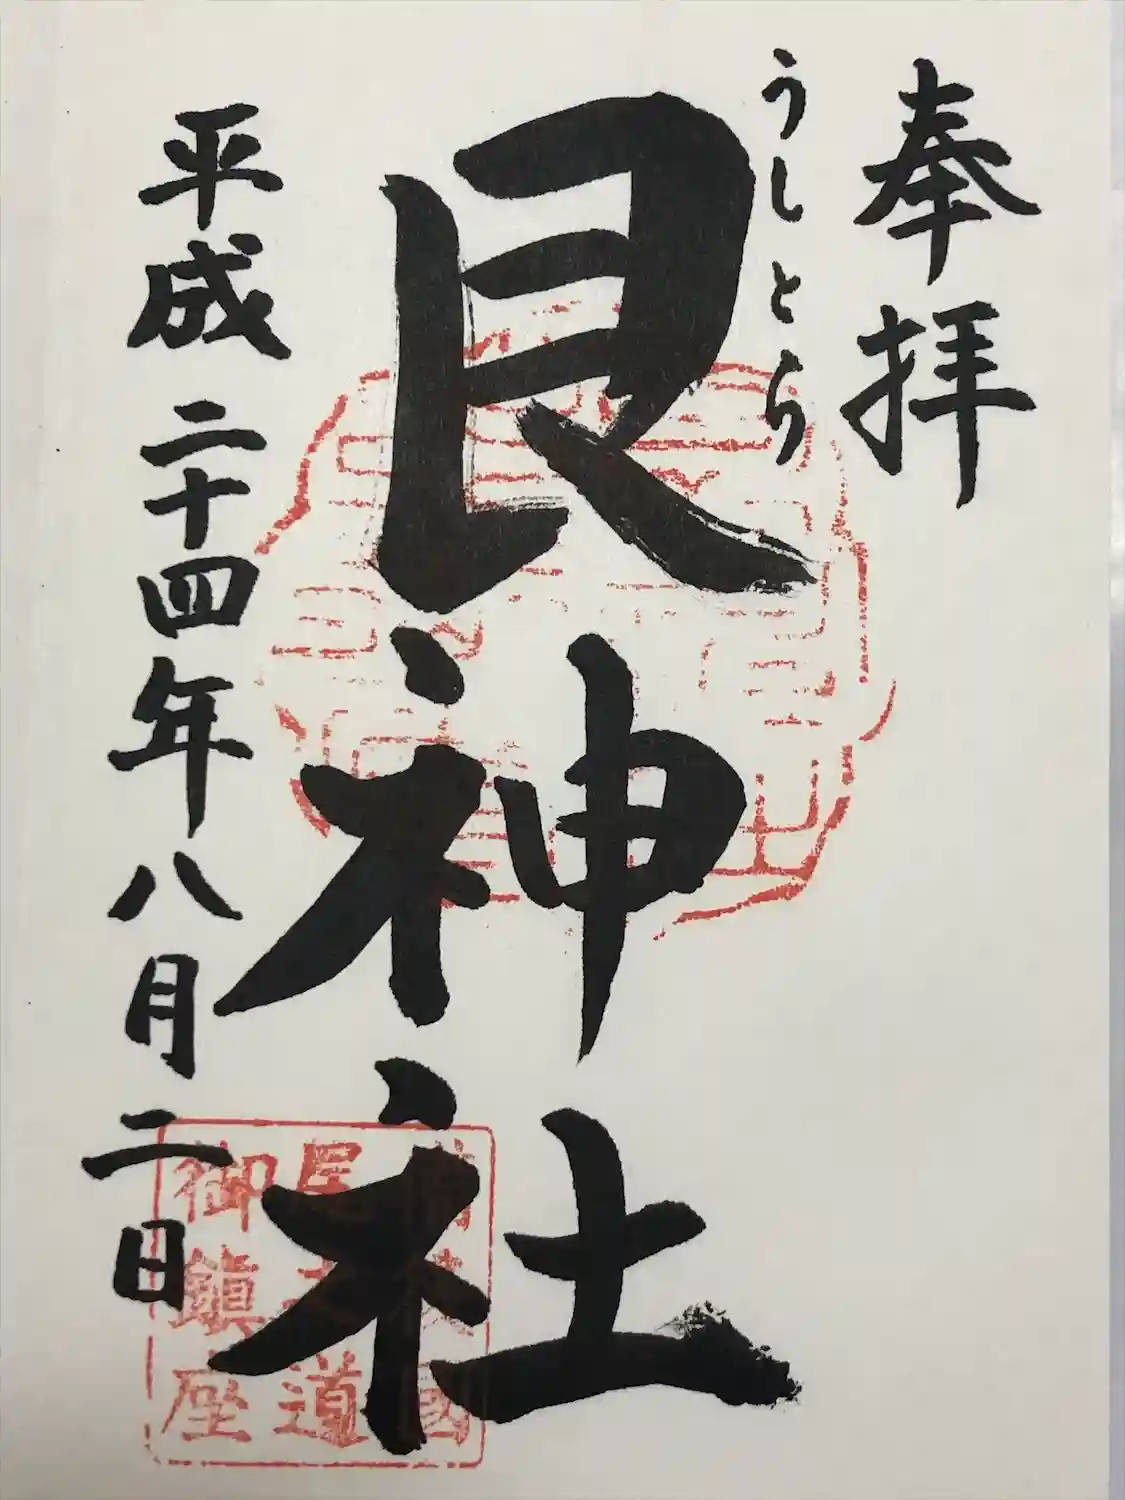 奉拝
うしとら
艮神社
平成二十四年八月二日
備後國
尾之道
御鎮座